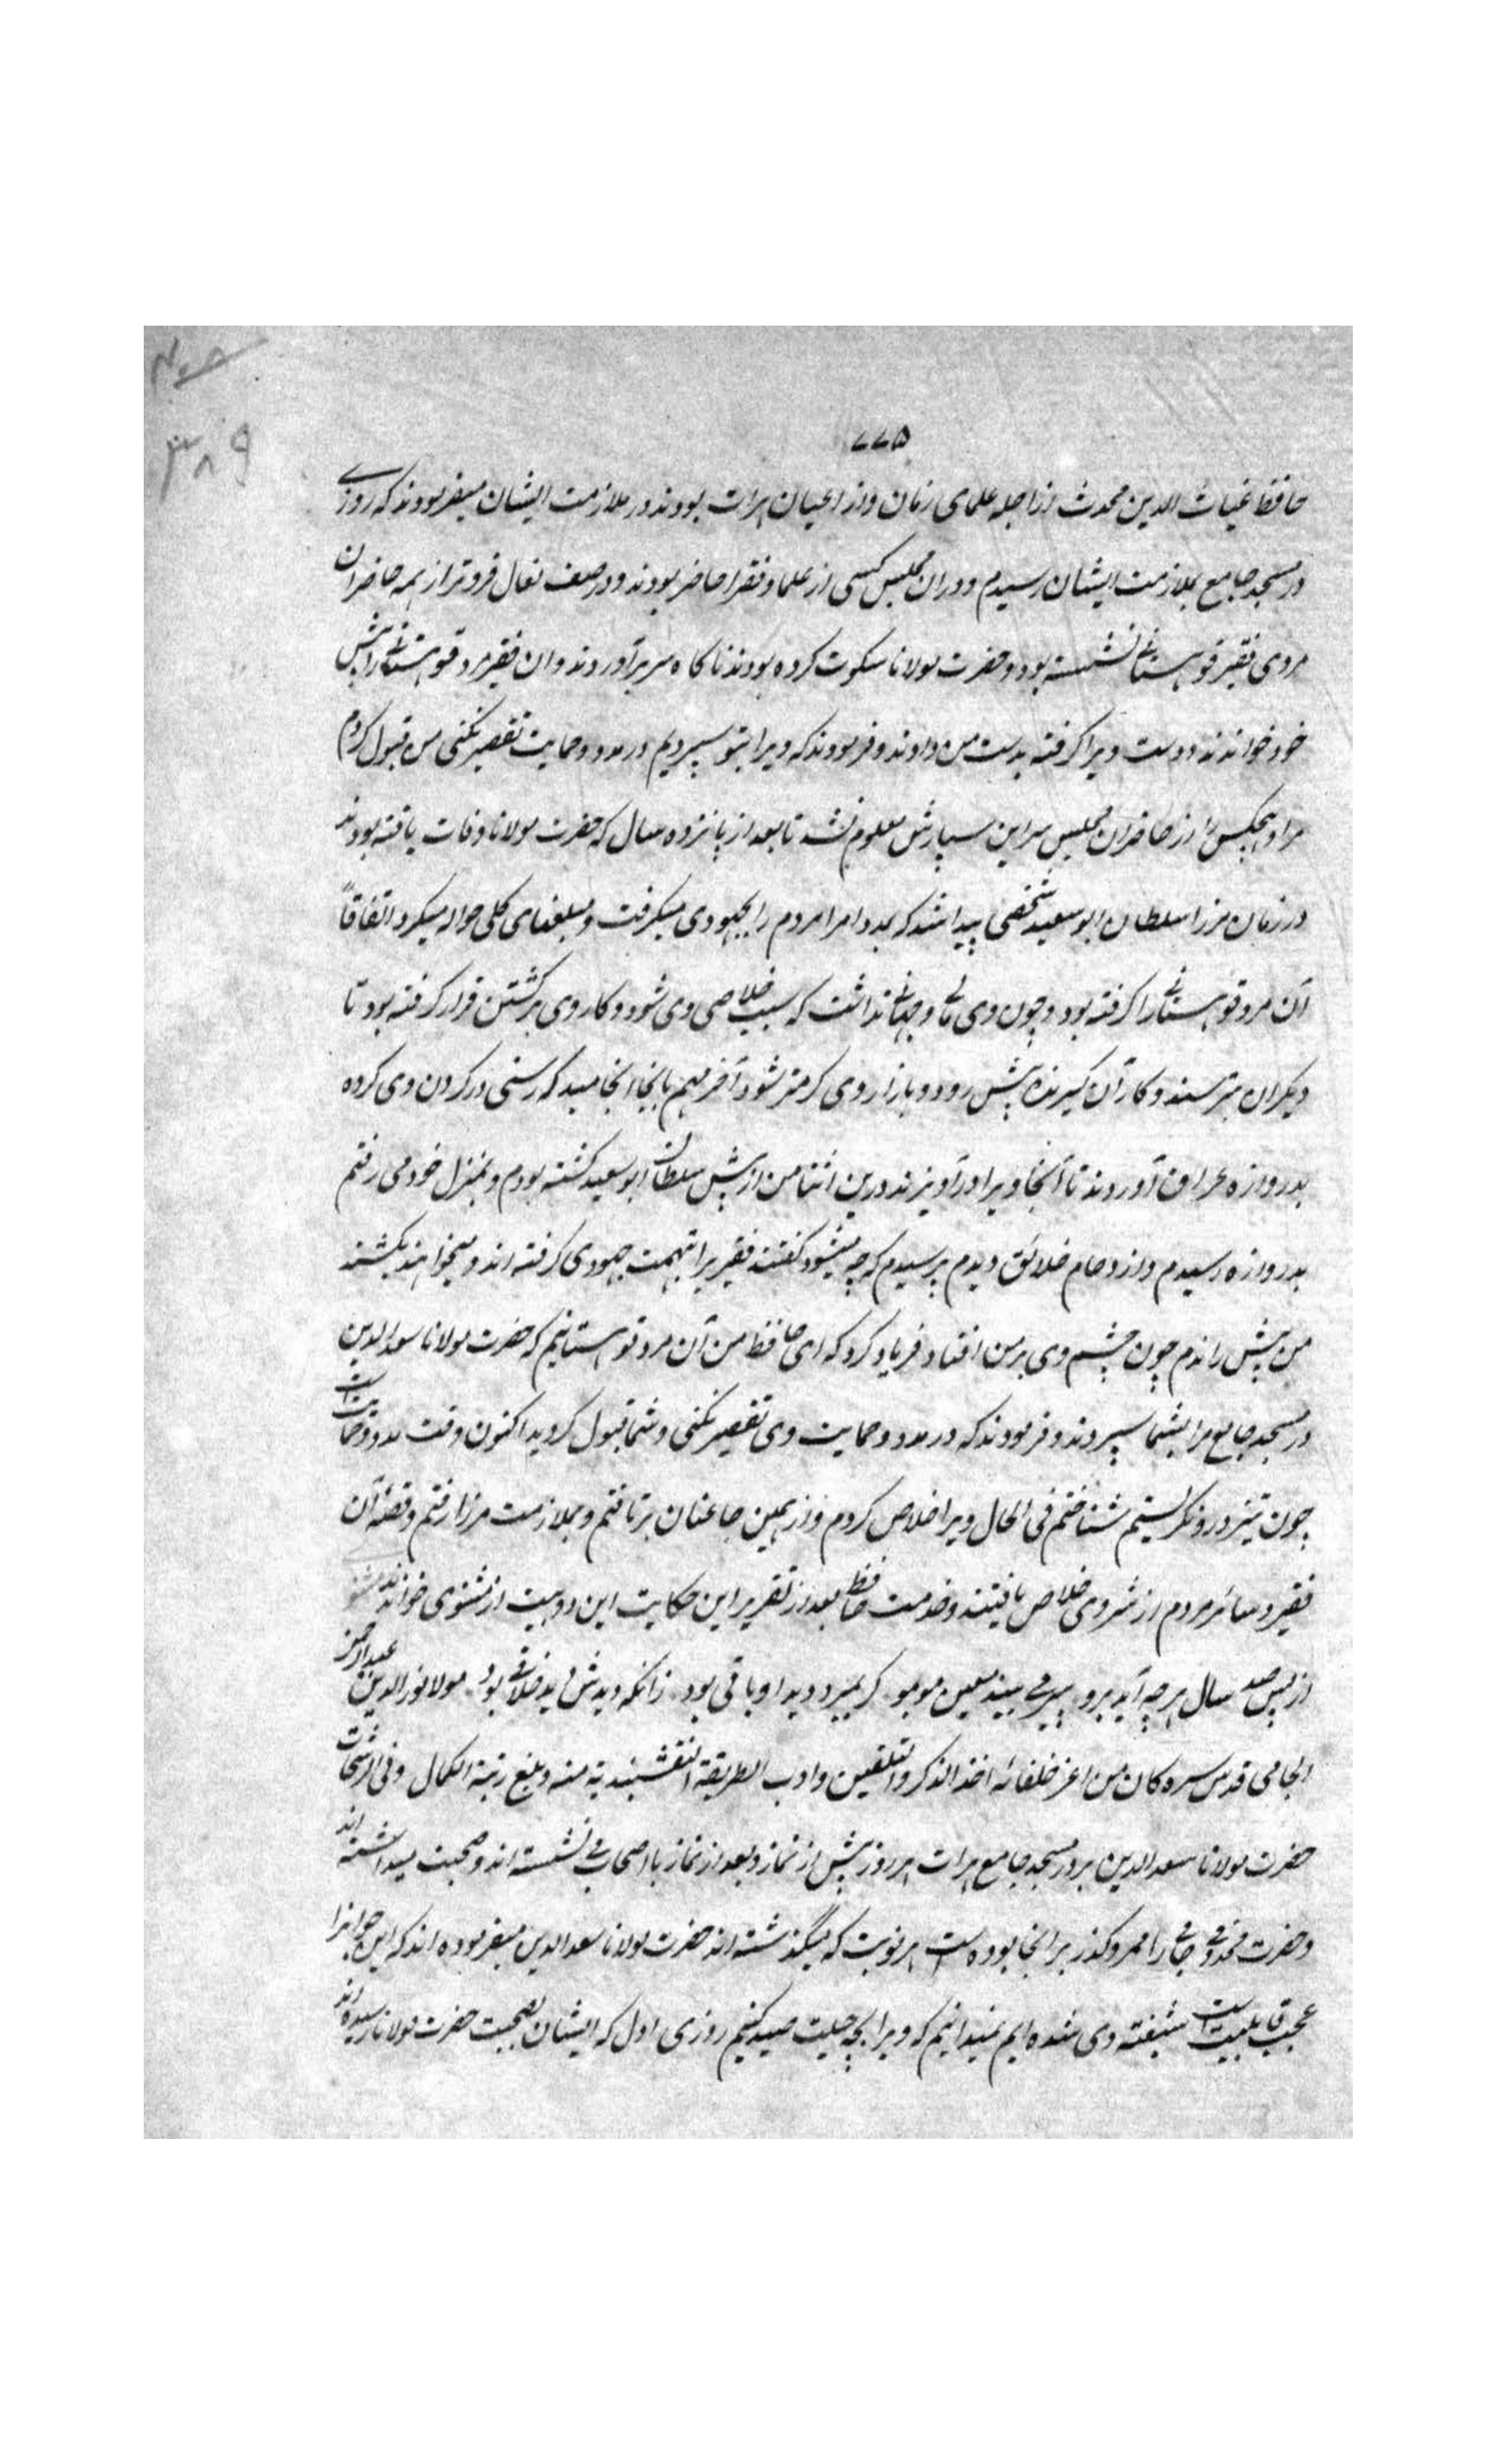 ۷۷۵
۳۸۹
حافظ غیاث الدین محدث از اجله علمای زمان و از اعیان هرات بودند و در ملازمت ایشان میفرمودند که روزے
در مسجد جامع بملازمت ایشان رسیدم و دران مجلس کسی از علما و فقرا حاضر بودند و در صف نعال فروتر از همه حاضران
مردی فقیر قوهستانی نشسته بود و حضرت مولانا سکوت کرده بودند ناکاه سر برآوردند و ان فقیر مرد قوهستانی را پیش
خود خواندند و دست ویرا کرفته بدست من دادند و فرمودند که ویرا بتو سپردیم در مدد و حمایت تقصیر نکنی من قبول کردم
مرا و هیچکس را از حاضران مجلس سر این سپارش معلوم نشد تا بعد از پانزده سال که حضرت مولانا وفات یافته بودند
در زمان مرزا سلطان ابو سعید شخصی پیدا شد که بمدد امرا مردم را بجهودی میکرفت و مبلغهای کلی حواله میکرد اتفاقاً
آن مرد قوهستانی را کرفته بود و چون وی مالی و جهاتی نداشت که سبب خلاصی وی شود و کار وی برکشتن قرار کرفته بود تا
دیکران بترسند و کار آن کیرنده پیش رود و بازار وی کرمتر شود آخر مهم بانجا انجامید که رسنی در کردن وی کرده
بدروازه عراق آوردند تا آنجا ویرا درآویزند درین اثنا من از پیش سلطان ابو سعید کشته بودم و بمنزل خود می رفتم
بدروازه رسیدم و ازدحام خلائق دیدم پرسیدم که چه میشود کفتند فقیریرا بتهمت جهودی کرفته اند و میخواهند بکشند
من پیش راندم چون چشم وی بر من افتاد فریاد کرد که ای حافظ من آن مرد قوهستانیم که حضرت مولانا سعد الدین
در مسجد جامع مرا بشما سپردند و فرمودند که در مدد و حمایت وی تقصیر نکنی و شما قبول کردید اکنون وقت مدد و حمایت است
چون تیز درو نکریستم شناختم فی الحال ویرا خلاص کردم و از همین جا عنان برتافتم و بملازمت مرزا رفتم و قصه آن
فقیر و سائر مردم از شر وی خلاص یافتند و خدمت حافظ بعد از تقریر این حکایت این دو بیت از مثنوی خواندند مثنوی
از پس صد سال هر چه آید برو پیر می بیند معین مو بمو کر بمیرد دید او باقی بود زانکه دیدش دید خلاقی بود مولانا نور الدین عبد الرحمن
الجامی قدس سره کان من اعز خلفائه اخذ الذکر و التلقین و ادب الطریقة النقشبندیة منه و بلغ رتبة الکمال و فی الرشحات
حضرت مولانا سعد الدین بر در مسجد جامع هرات هر روز پیش از نماز و بعد از نماز با اصحاب می نشسته اند و صحبت میداشته اند
و حضرت مخدومی جامی را ممر و کذر بر انجا بوده است هر نوبت که میگذشته اند حضرت مولانا سعد الدین میفرموده اند که این جوانرا
عجب قابلیت است شیفته وی شده ایم نمیدانیم که ویرا بچه حیلت صید کنیم روزی اول که ایشان بصحبت حضرت مولانا رسیده اند